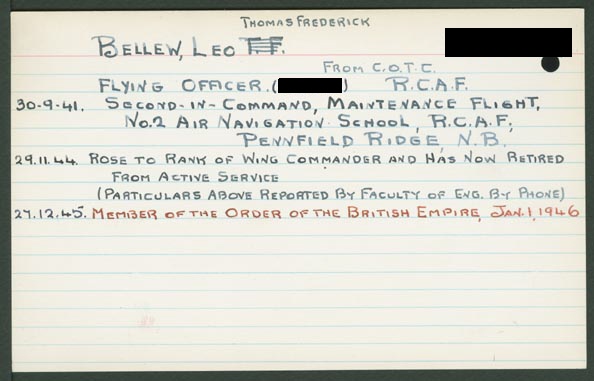 THOMAS FREDERICK
BELLEW, LEO T.F.
FROM C.O.T.C.
FLYING OFFICER. ( ) R.C.A.F.
30-9-41. SECOND-IN-COMMAND, MAINTENANCE FLIGHT,
No.2 AIR NAVIGATION SCHOOL, R.C.A.F,
PENNFIELD RIDGE, N.B.
29.11.44. ROSE TO RANK OF WING COMMANDER AND HAS NOW RETIRED
FROM ACTIVE SERVICE
(PARTICULARS ABOVE REPORTED BY FACULTY OF ENG. BY PHONE)
27.12.45. MEMBER OF THE ORDER OF THE BRITISH EMPIRE, JAN.1,1946